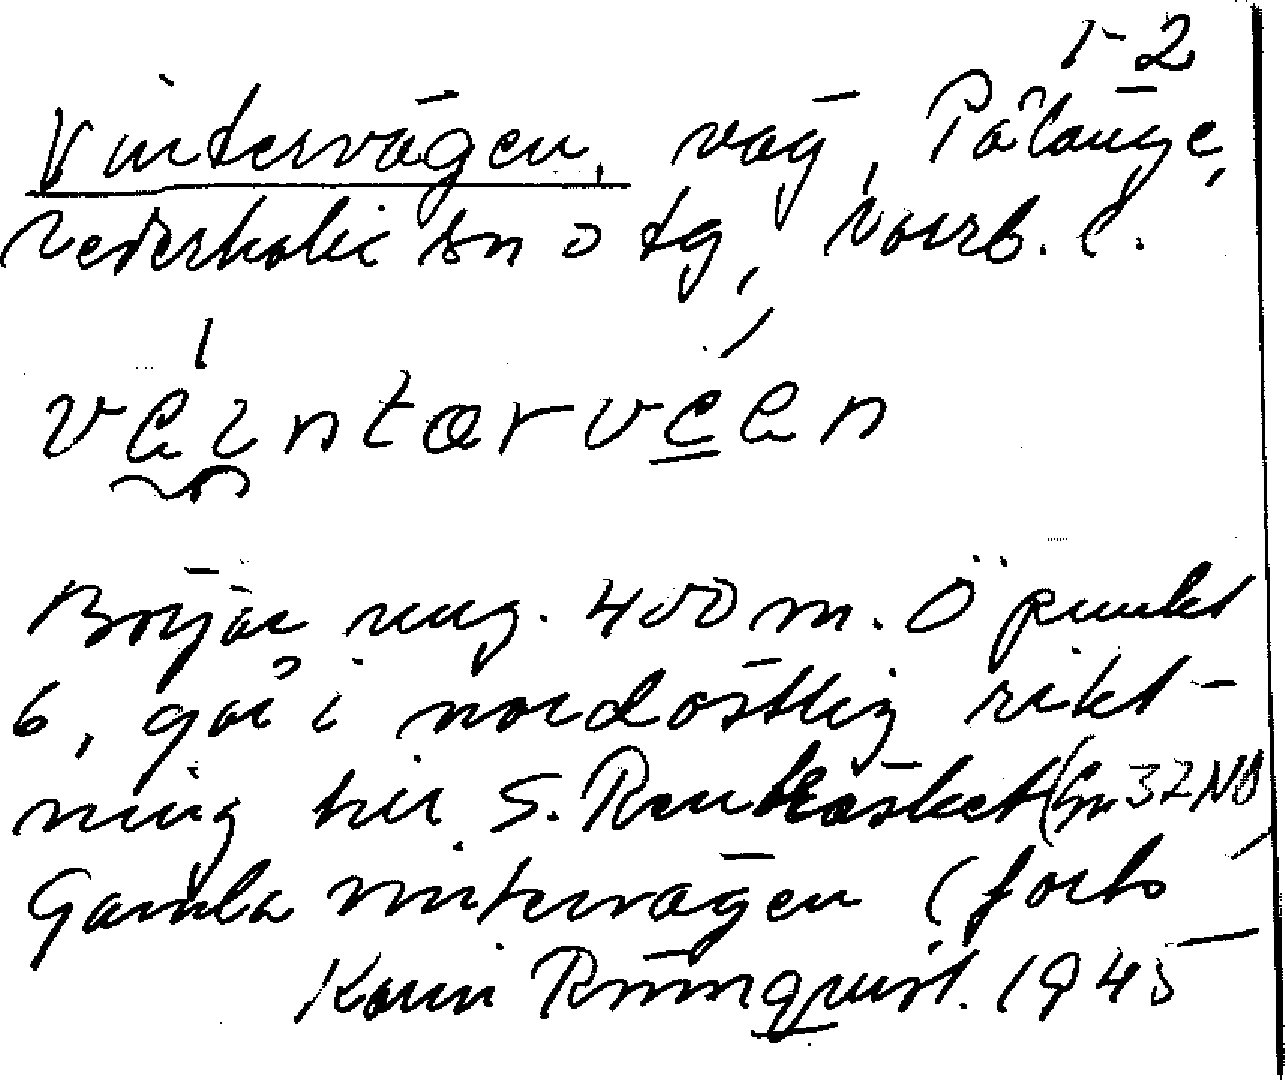 1-2
Vintervägen, väg, Pålänge,
Nederkalix sn o tg, Norrb. l.
veintærvęen
Börjar ung. 400 m. Ö punkt
6, går i nordöstlig rikt-
ning till S. Renträsket (Gu 32 NO)
Gamla vintervägen (forts
Karin Rönnquist. 1945